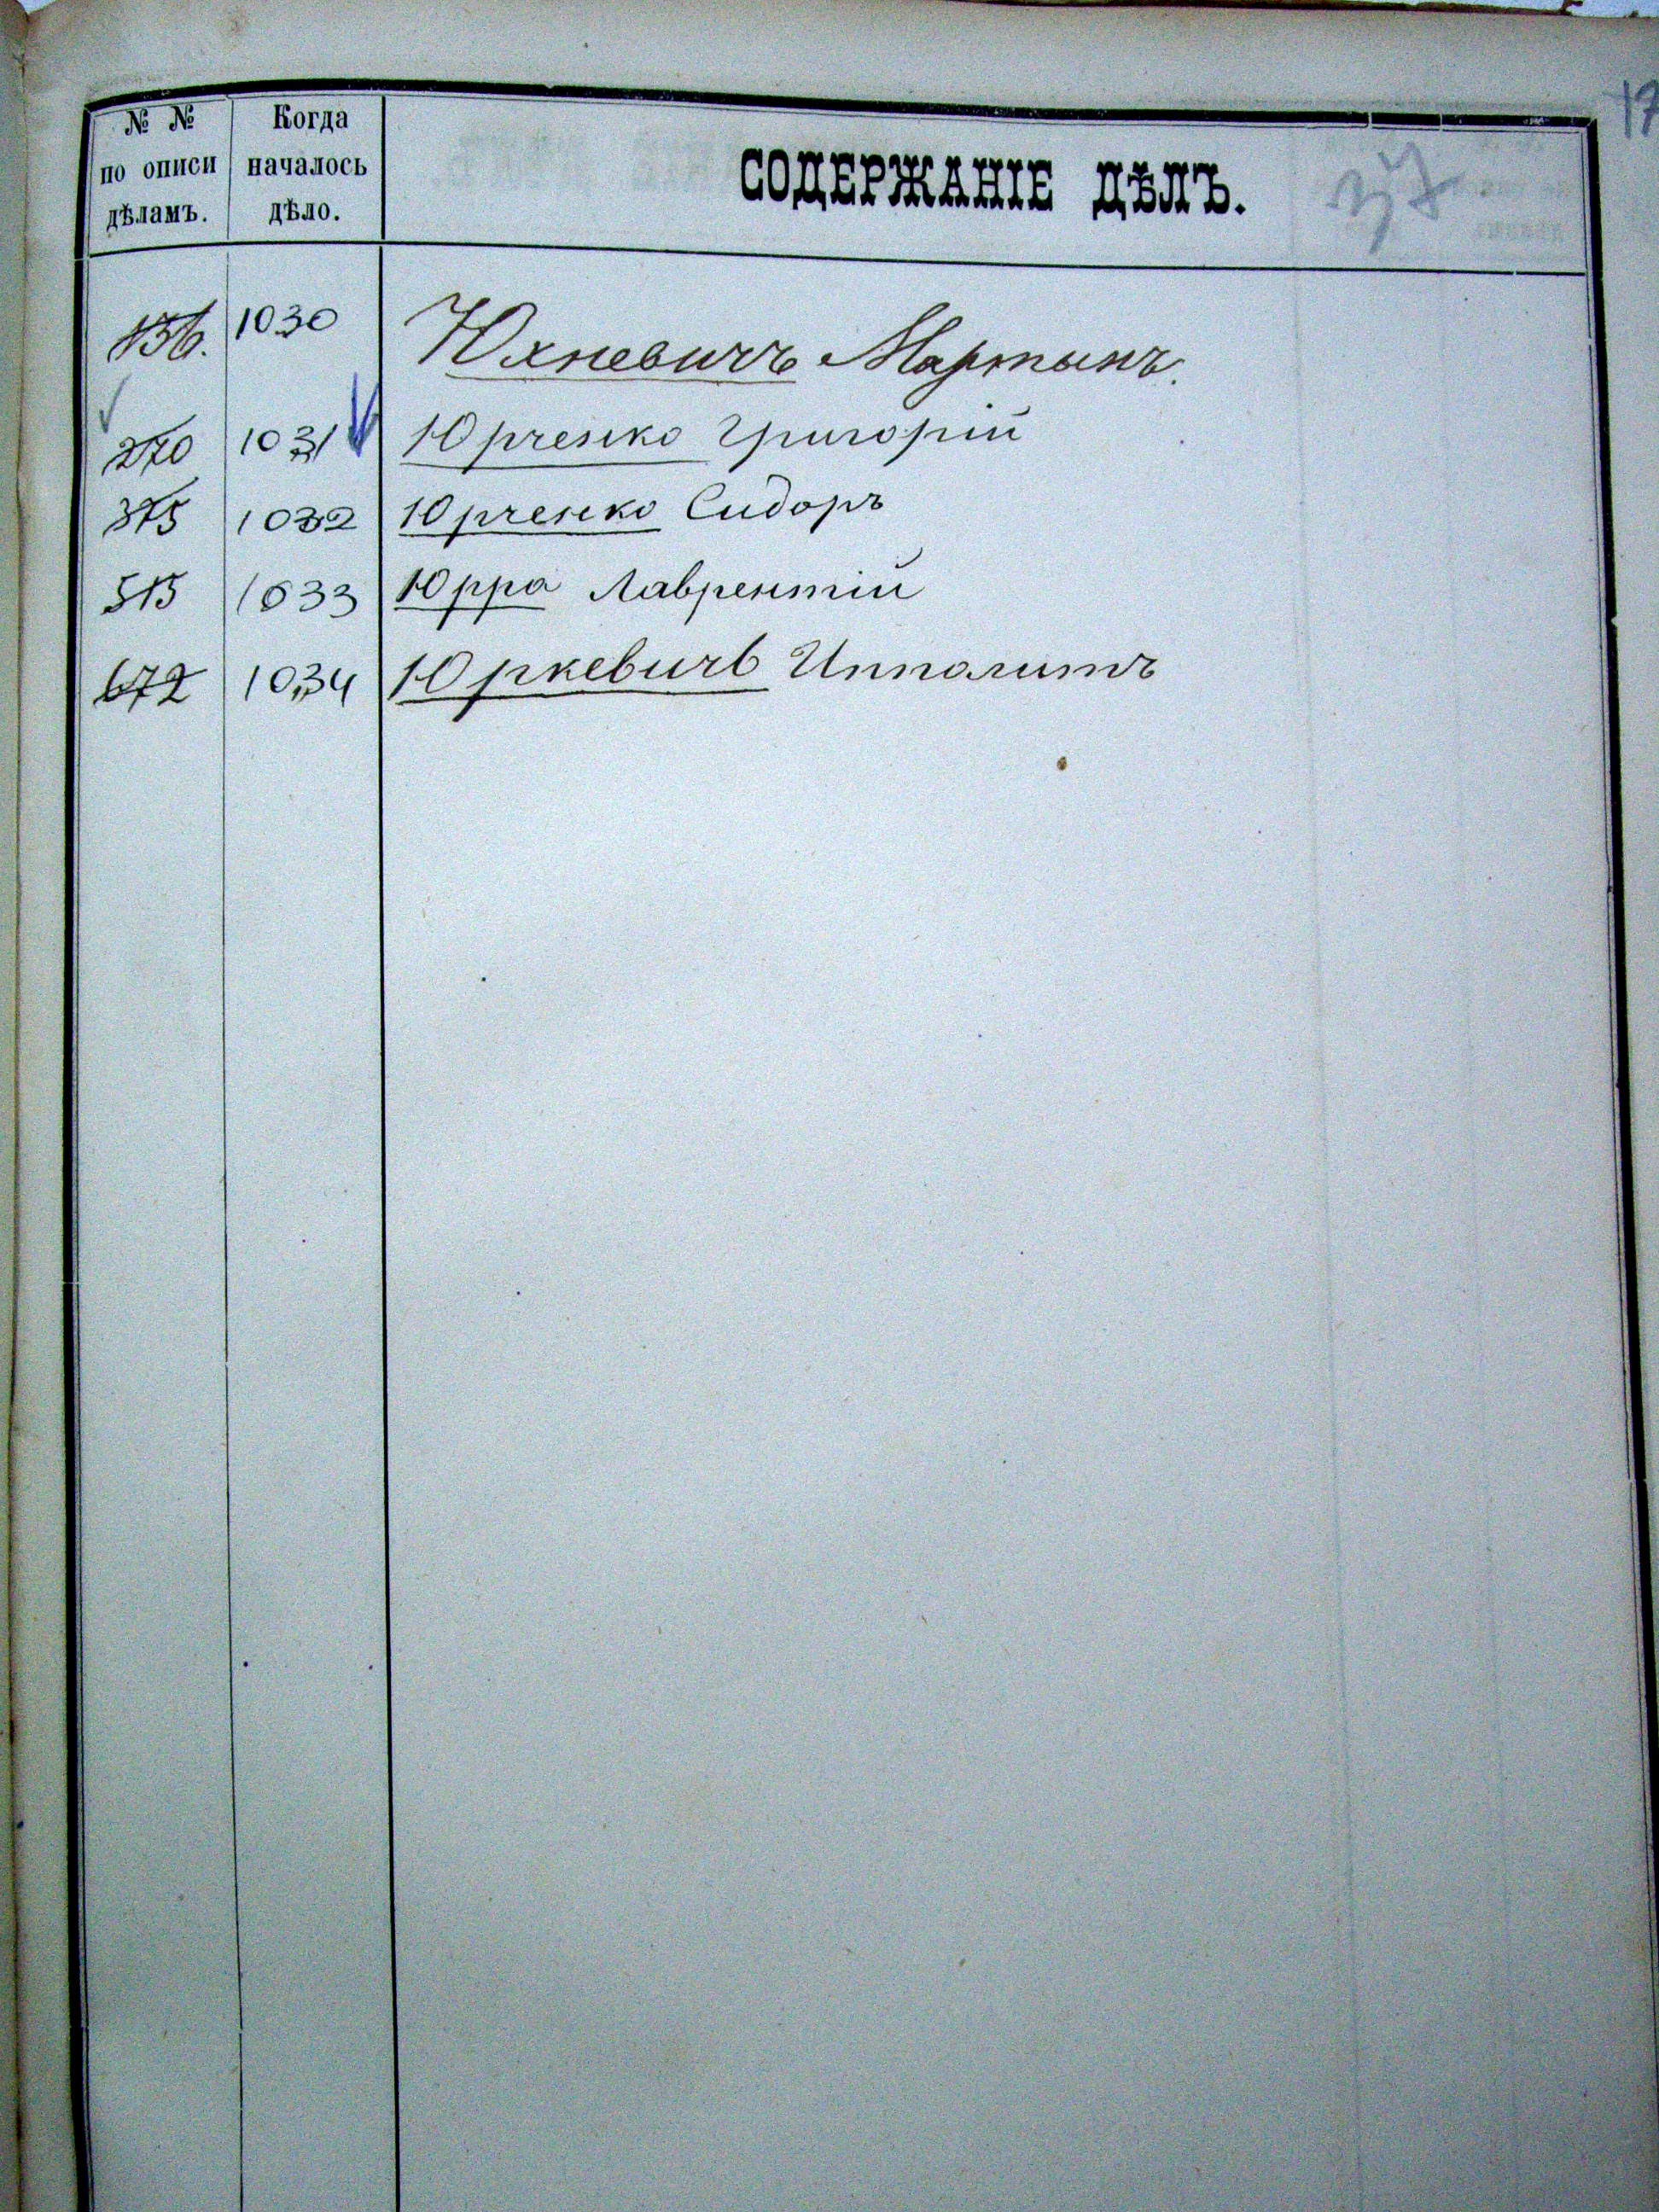 № № по описи дѣламъ. Когда началось дѣло. СОДЕРЖАНІЕ ДѢЛЪ.
17
136. 1030 Юхневичъ Мартынъ.
270 1031 Юрченко Григорій
375 1032 Юрченко Сидоръ
515 1033 Юрра Лаврентій
672 1034 Юркевичъ Ипполитъ